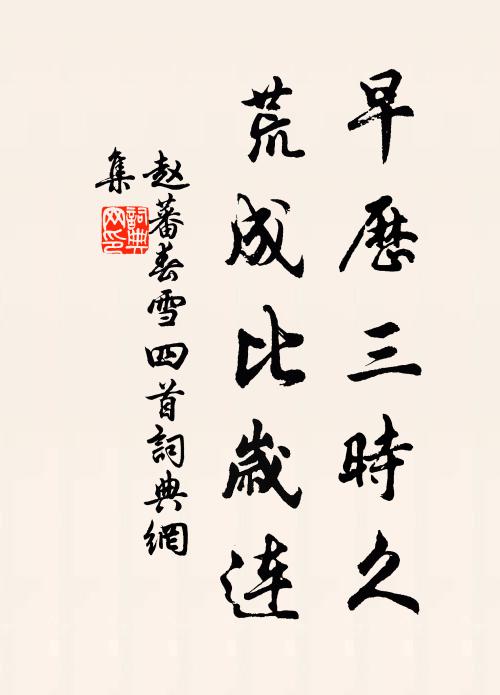 早歷三時久
荒成比歲连
赵蕃春雪四首詞典網
集
詞典网印